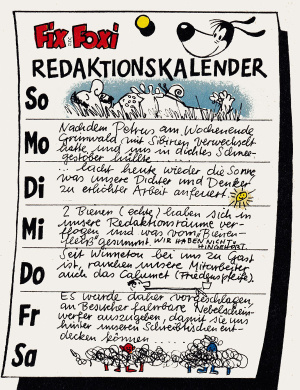 Fix und Foxi
REDAKTIONSKALENDER
So
Mo
Nachdem Petrus am Wochenende
Grünwald mit Sibirien verwechselt
hatte und uns in dichtes Schnee-
gestöber hüllte . . . . . .
Di
. . . lacht heute wieder die Sonne
was unsere Dichter und Denker
zu erhöhter Arbeit anfeuert.
Mi
2 Bienen (echte) haben sich in
unsere Redaktionsräume ver-
flogen und was vom Bienen-
fleiß gesummt. WIR HABEN NICHTS
HINGEHÖRT.
Do
Seit Winnetou bei uns zu Gast
ist, rauchen unsere Mitarbeiter
auch das Calumet (Friedenspfeife).
Fr
Es wurde daher vorgeschlagen,
an Besucher fahrbare Nebelschein-
werfer auszugeben, damit sie uns
hinter unseren Schreibtischen ent-
decken können . . . . . .
Sa